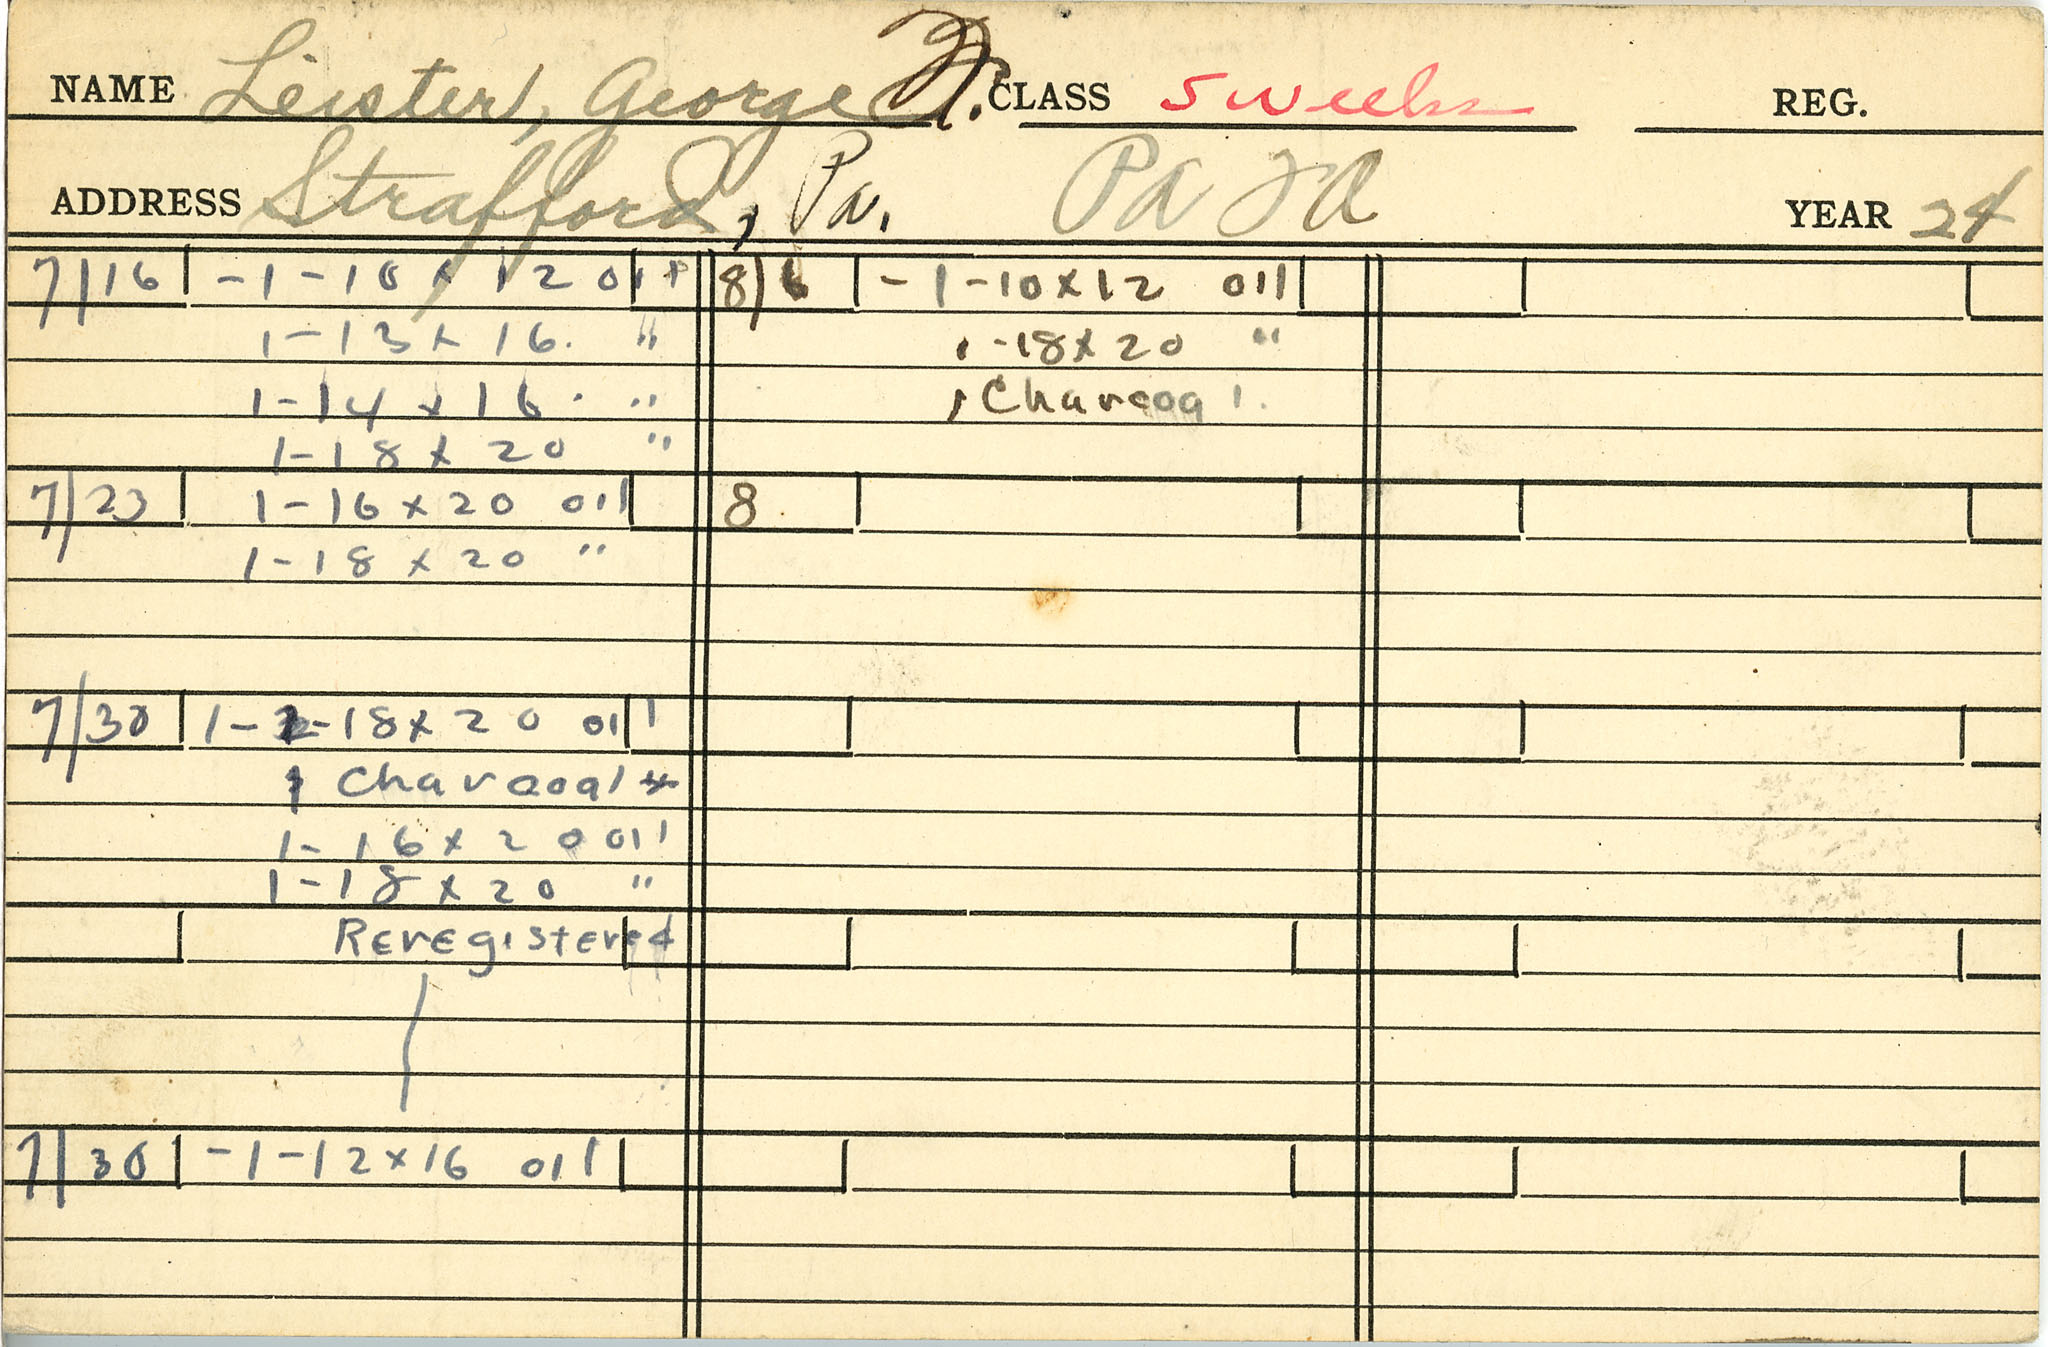 NAME Leister, George CLASS 5 weeks REG.
ADDRESS Strafford, Pa. Pa Pd YEAR 24
7/16 -1-10 x 12 oil
1-13 x 16. "
1-14 x 16. "
1-18 x 20 "
7/23 1-16 x 20 oil
1-18 x 20 "
7/30 1- -18 x 20 oil
1 Charcoal
1-16 x 20 oil
1-18 x 20 "
Reregistered
7/30 -1-12x16 oil
8/6 -1-10x12 oil
1-18x20 "
1 Charcoal.
8